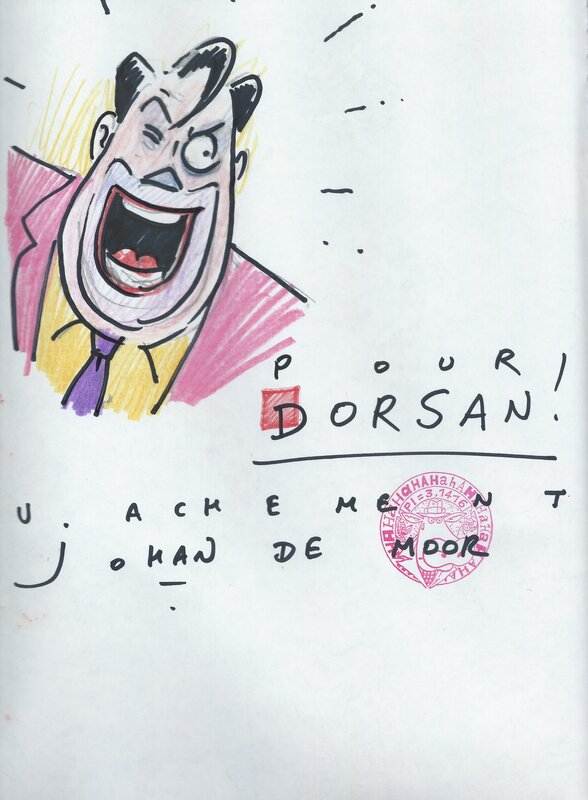 POUR!
DORSAN!
U. ACHEMENT
JOHAN DE MOOR
HAHAHAHAHAHAHAHAHA
PI=3.1416